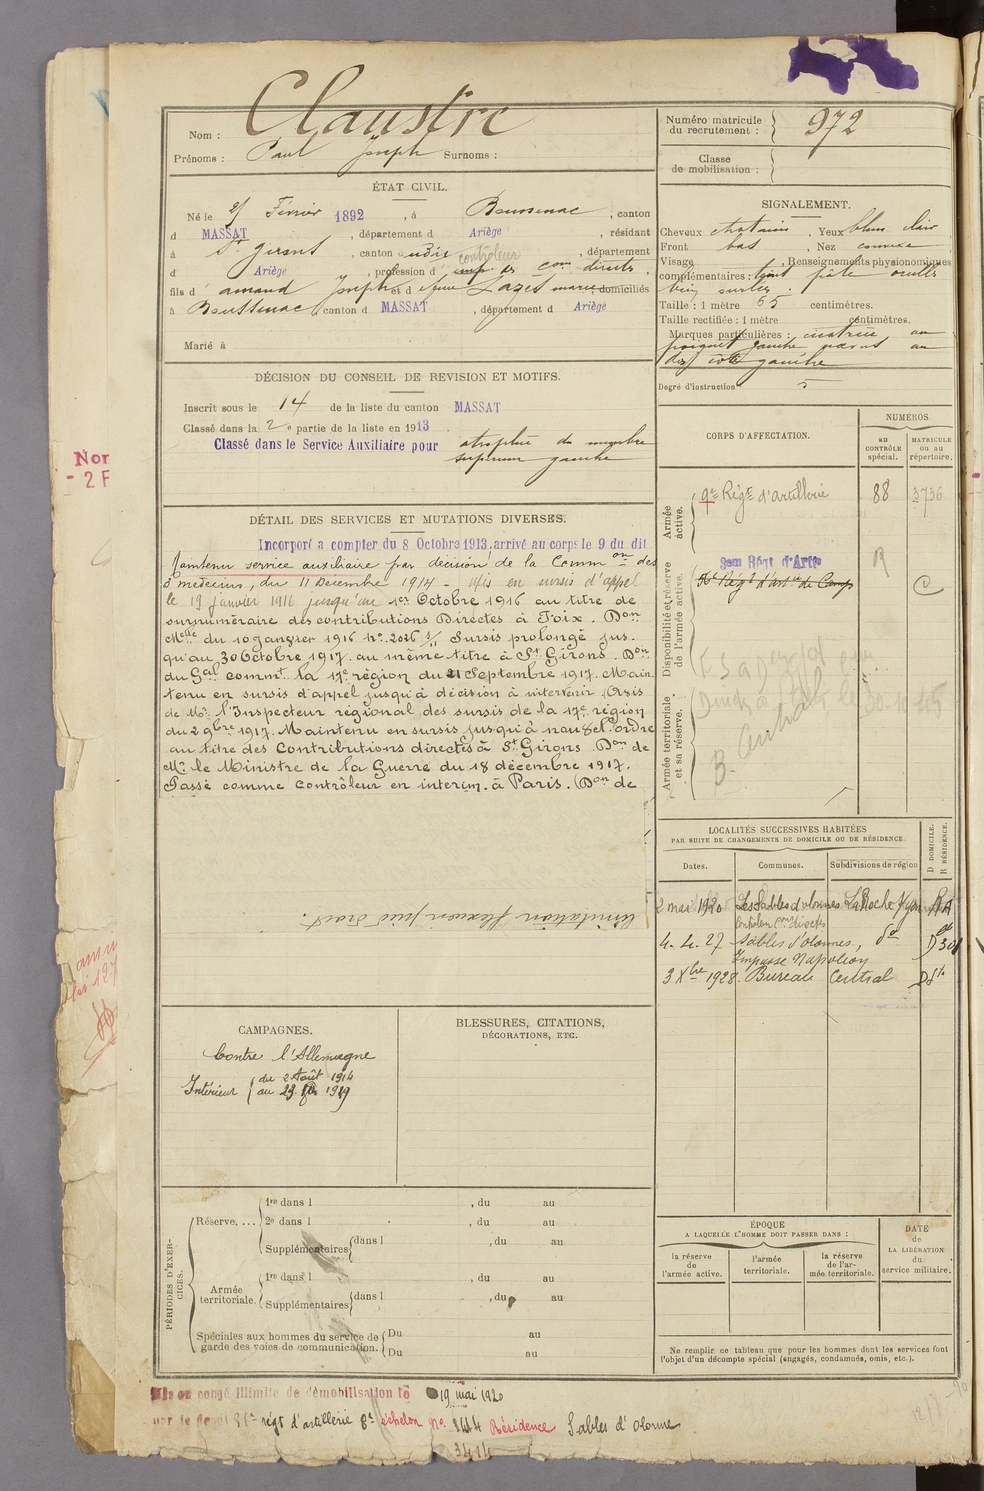 Nom : Claustre
Prénoms : Paul Joseph Surnoms :
Numéro matricule
du recrutement : 972
Classe
de mobilisation :
ÉTAT CIVIL.
Né le 2 Février 1892, à Boussenac, canton
d MASSAT, département d Ariège, résidant
à St Girons, canton dudit, département
contrôleur
d Ariège, profession d' emp. des con directes,
fils d' Amand Joseph et d Lazes domiciliés
à Boussenac canton d MASSAT, département d Ariège
Marié à
SIGNALEMENT.
Cheveux chatain. Yeux bleu clair
Front bas, Nez convexe
Visage, Renseignements physionomiques
complémentaires : teint pâle oreilles
bien ourlées.
Taille : 1 mètre 65 centimètres.
Taille rectifiée : 1 mètre centimètres.
Marques particulières : cicatrice au
poignet gauche au
côté gauche
Degré d'instruction
DÉCISION DU CONSEIL DE REVISION ET MOTIFS.
Inscrit sous le 14 de la liste du canton MASSAT
Classé dans la 2e partie de la liste en 1913.
Classé dans le Service Auxiliaire pour atrophie du membre
supérieur gauche
DÉTAIL DES SERVICES ET MUTATIONS DIVERSES.
Incorporé a compter du 8 Octobre 1913. arrivé au corps le 9 du dit
Maintenu service auxiliaire par décision de la Common des
3 médecins, du 11 Decembre 1914 - Mis en sursis d'appel
le 19 janvier 1916 jusqu'au 1er Octobre 1916 au titre de
surnuméraire des contributions Directes à Foix. Don
Melle du 10 janvier 1916 No. 2026 Sursis prolongé jus-
qu'au 30 Octobre 1917. au même titre à St Girons. Don
du Gal commt la 17e région du 21 Septembre 1917. Main-
tenu en sursis d'appel jusqu'à décision à intervenir Avis
de Mr l'Inspecteur régional des sursis de la 17e région
du 2 9bre 1917. Maintenu en sursis jusqu'à nouvel ordre
au titre des Contributions directes à St Girons. Don de
Mr le Ministre de la Guerre du 18 décembre 1917.
Passé comme Contrôleur en interim. à Paris. Don de
limitation flexion pied droit.
CORPS D'AFFECTATION.
NUMÉROS
au CONTRÔLE spécial.
MATRICULE ou au répertoire.
Armée active.
9e Régt d'artillerie 88 3736
Disponibilité et réserve de l'armée active.
Régt d'Artie
Régt d'artie de Camp
R
C
Armée territoriale et sa réserve.
30-10-45
B. Central
LOCALITÉS SUCCESSIVES HABITÉES
PAR SUITE DE CHANGEMENTS DE DOMICILE OU DE RÉSIDENCE.
Dates. Communes. Subdivisions de région
D DOMICILE. R RÉSIDENCE.
2 mai 1920 Les Sables d'olonnes La Roche s/yon
Contrôleur Con directes
4. 4. 27 Sables d'olonnes, do
Impasse Napoléon
3 Xbre 1928. Bureau Central
CAMPAGNES.
Contre l'Allemagne
Intérieur du 2 Août 1914
au 29 1919
BLESSURES, CITATIONS,
DÉCORATIONS, ETC.
PÉRIODES D'EXERCICES.
Réserve.... 1re dans l , du au
2e dans l , du au
Supplémentaires dans l , du au
Armée territoriale. 1re dans l , du au
Supplémentaires dans l , du au
Spéciales aux hommes du service de garde des voies de communication. Du au
Du au
ÉPOQUE
A LAQUELLE L'HOMME DOIT PASSER DANS :
la réserve de l'armée active.
l'armée territoriale.
la réserve de l'armée territoriale.
DATE de LA LIBÉRATION du service militaire.
Ne remplir ce tableau que pour les hommes dont les services font
l'objet d'un décompte spécial (engagés, condamnés, omis, etc.).
en congé illimité de démobilisation le 19 mai 1920
par le dépôt régt d'artillerie 8e échelon No. 3414 Résidence Sables d'olonne
3414